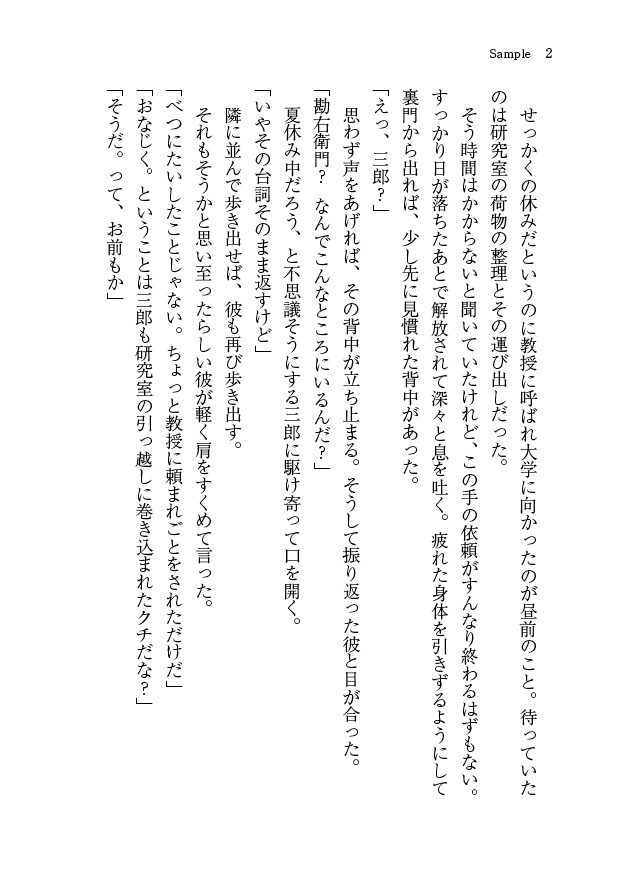 Sample 2
せっかくの休みだというのに教授に呼ばれ大学に向かったのが昼前のこと。待っていた
のは研究室の荷物の整理とその運び出しだった。
そう時間はかからないと聞いていたけれど、この手の依頼がすんなり終わるはずもない。
すっかり日が落ちたあとで解放されて深々と息を吐く。疲れた身体を引きずるようにして
裏門から出れば、少し先に見慣れた背中があった。
「えっ、三郎?」
思わず声をあげれば、その背中が立ち止まる。そうして振り返った彼と目が合った。
「勘右衛門? なんでこんなところにいるんだ?」
夏休み中だろう、と不思議そうにする三郎に駆け寄って口を開く。
「いやその台詞そのまま返すけど」
隣に並んで歩き出せば、彼も再び歩き出す。
それもそうかと思い至ったらしい彼が軽く肩をすくめて言った。
「べつにたいしたことじゃない。ちょっと教授に頼まれごとをされただけだ」
「おなじく。ということは三郎も研究室の引っ越しに巻き込まれたクチだな?」
「そうだ。って、お前もか」